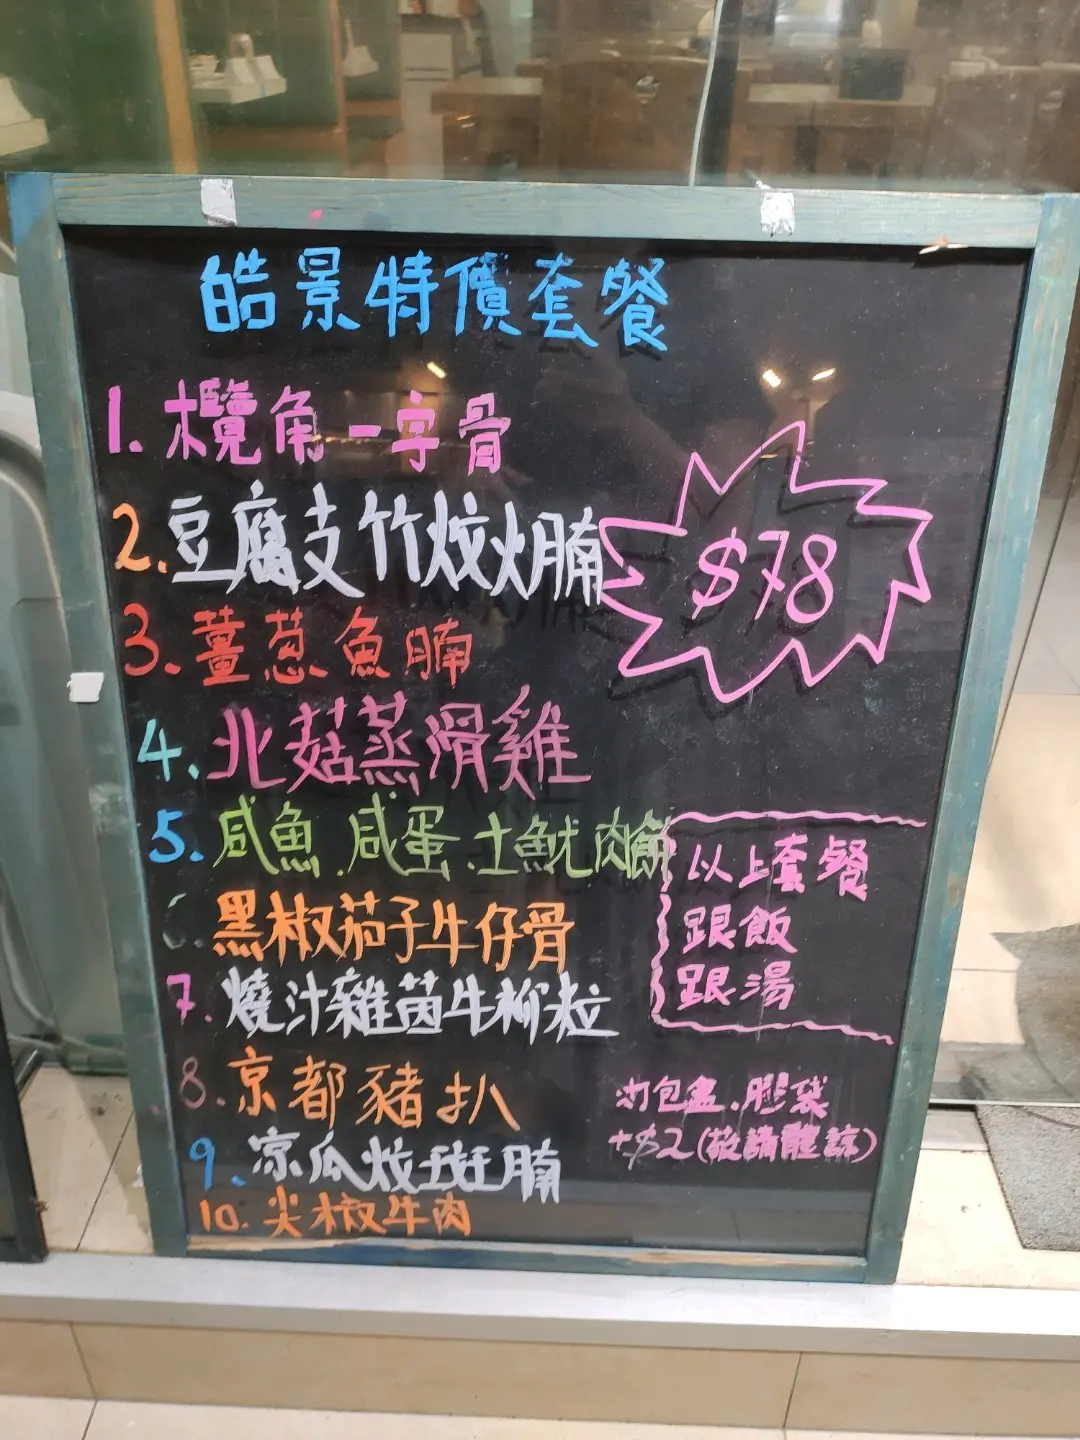 皓景特價套餐
1. 欖角一字骨
2. 豆腐支竹炆火腩
$78
3. 薑葱魚腩
4. 北菇蒸滑雞
5. 咸魚.咸蛋.土魷肉餅
6. 黑椒茄子牛仔骨
7. 燒汁雜菌牛柳粒
8. 京都豬扒
9. 凉瓜炆斑腩
10. 尖椒牛肉
以上套餐
跟飯
跟湯
打包盒.膠袋
+$2(敬請體諒)